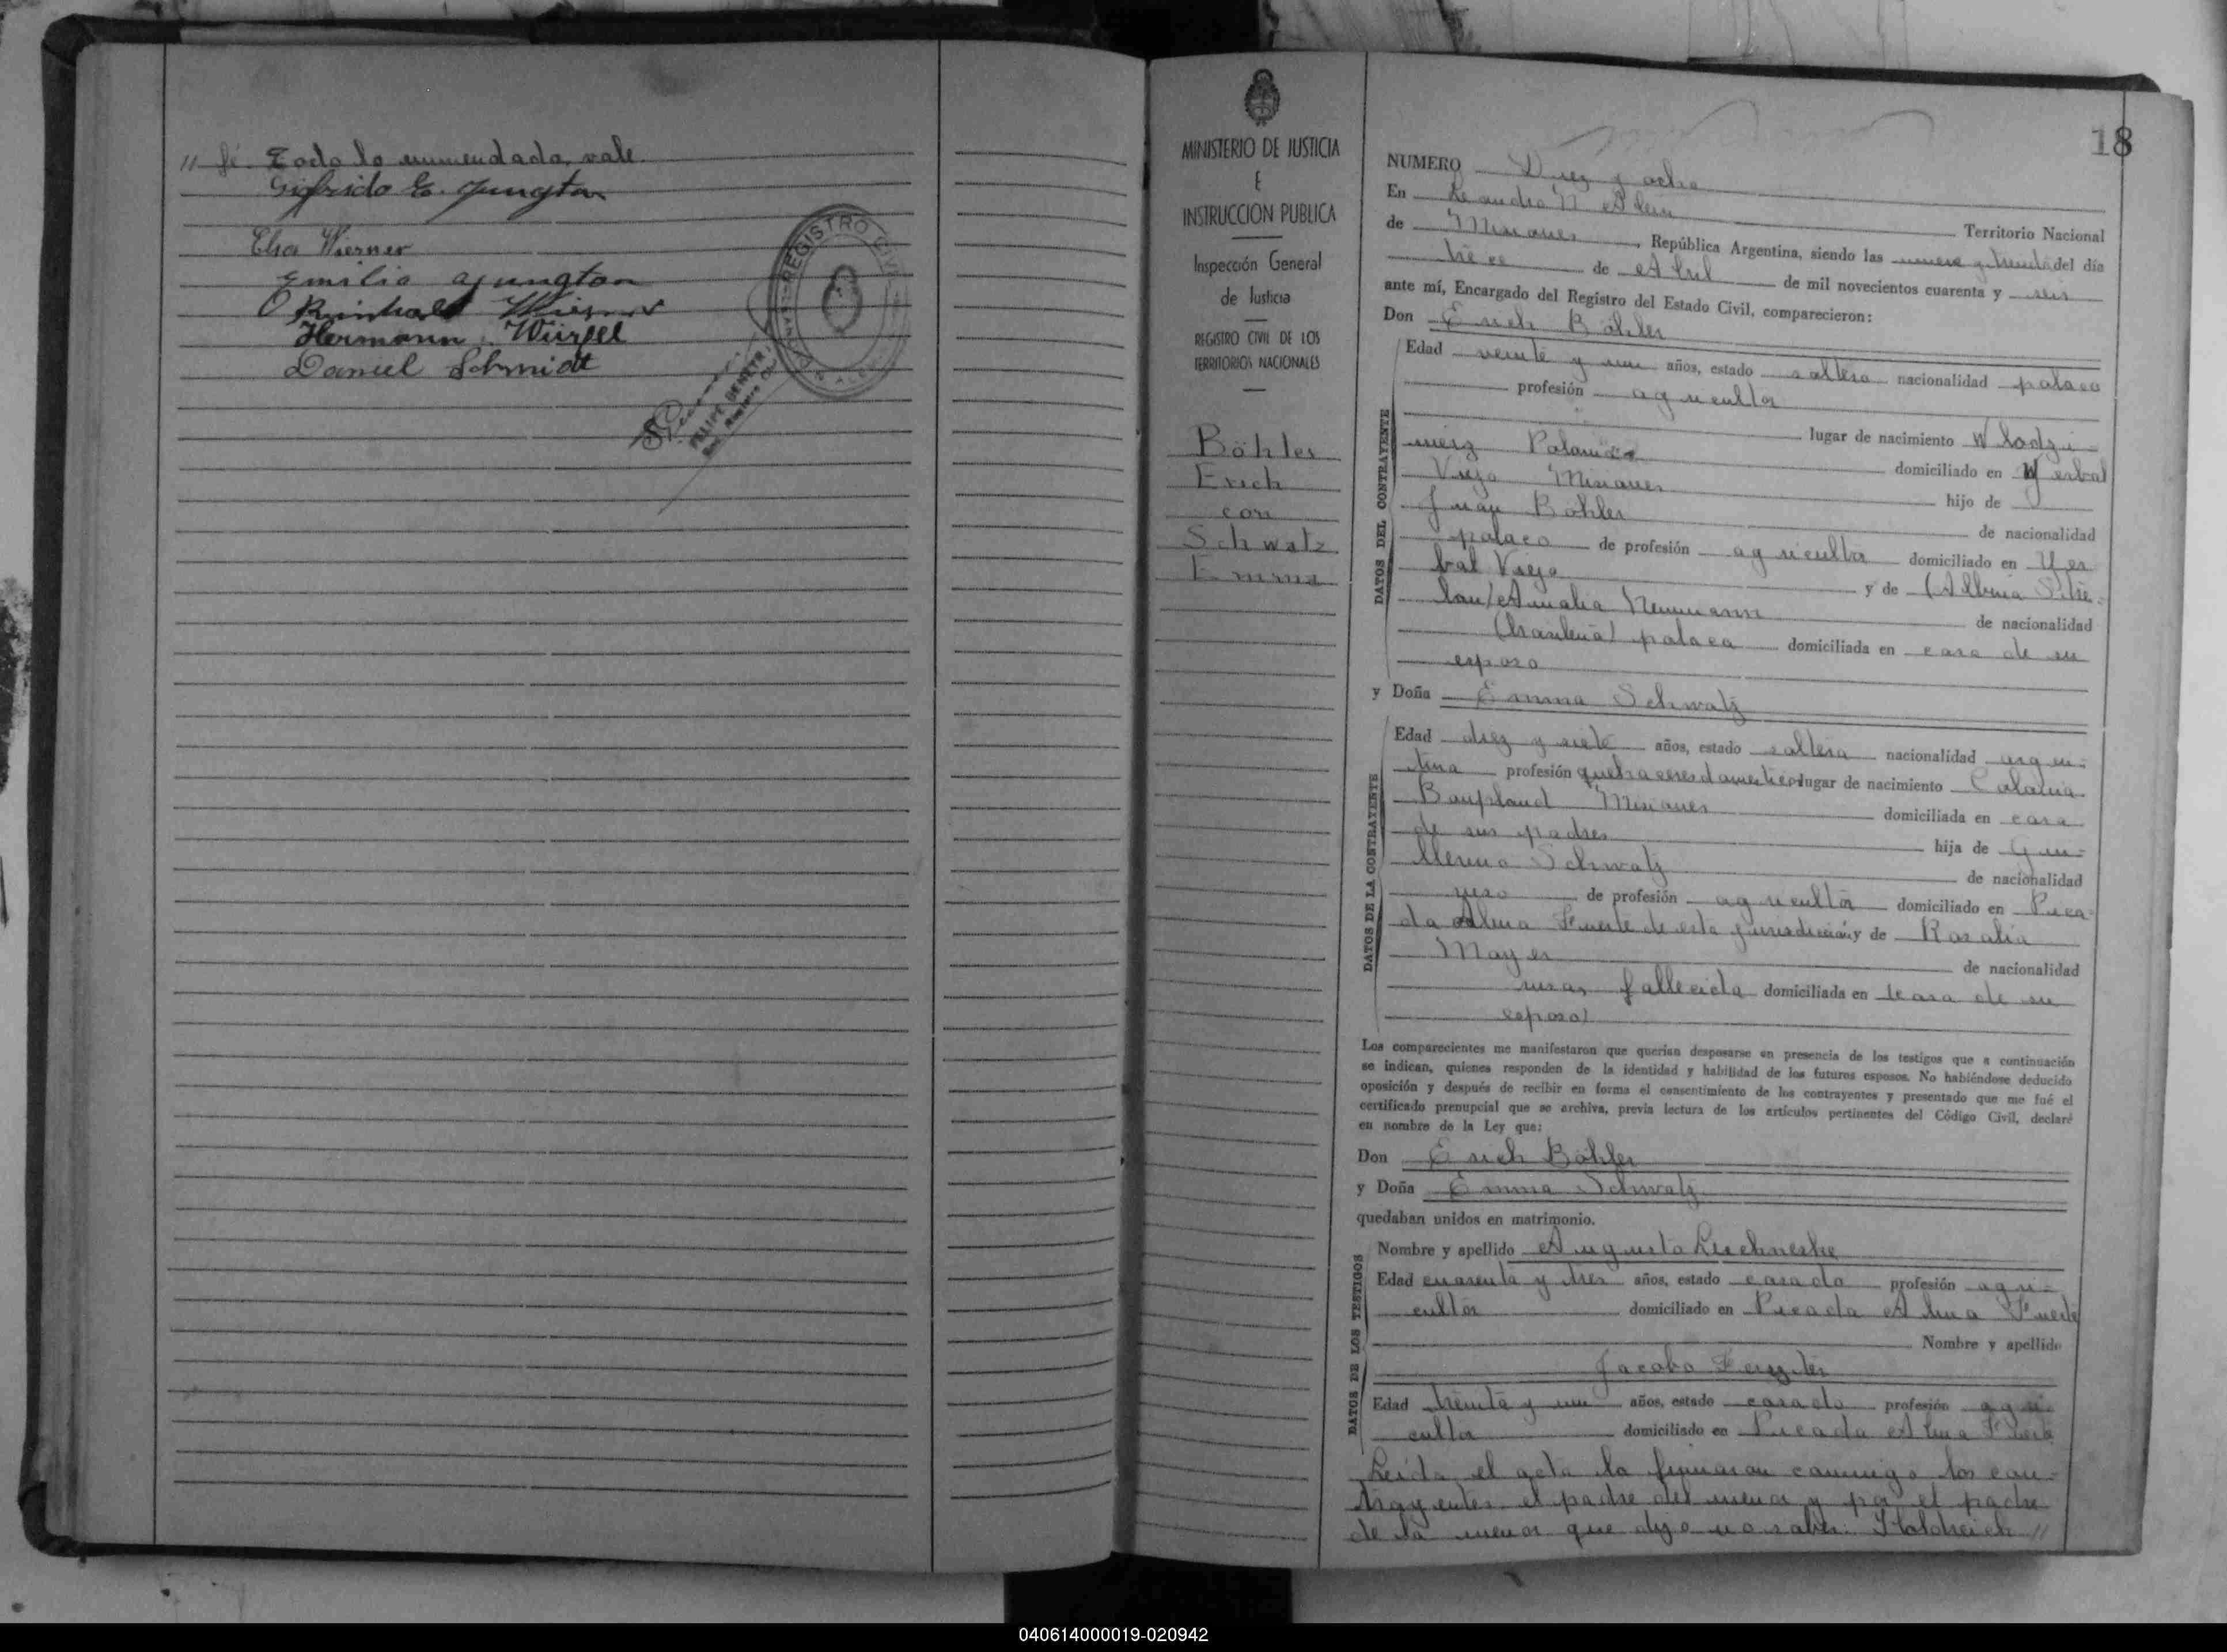 // fé. Todo lo enmendado, vale.
Gifrido E. Jungton
Elsa Wiesner
Emilio Jungton
Reinhold Wiesner
Hermann Würfel
Daniel Schmidt
REGISTRO CIVIL
FELIPE
18
MINISTERIO DE JUSTICIA
E
INSTRUCCION PUBLICA
Inspección General
de Justicia
REGISTRO CIVIL DE LOS
TERRITORIOS NACIONALES
Böhler
Erich
con
Schwatz
Emma
NUMERO Diez y ocho
En Leandro N Alem
Territorio Nacional
de Misiones, República Argentina, siendo las nueve y treinta del día
trece de Abril de mil novecientos cuarenta y seis
ante mí, Encargado del Registro del Estado Civil, comparecieron:
Don Erich Böhler
DATOS DEL CONTRAYENTE
Edad veinte y un años, estado soltero nacionalidad polaco
profesión agricultor
lugar de nacimiento Wlodzi
mierz Polonia domiciliado en Yerbal
Viejo Misiones hijo de
Juan Böhler de nacionalidad
polaco de profesión agricultor domiciliado en Yer
bal Viejo y de (Albina
Amalia Neumann de nacionalidad
(brasileña) polaca domiciliada en casa de su
esposo
y Doña Emma Schwatz
DATOS DE LA CONTRAYENTE
Edad diez y siete años, estado soltera nacionalidad argen-
tina profesión quehaceres domesticos lugar de nacimiento Colonia
Bonpland Misiones domiciliada en casa
de sus padres hija de Gui-
llermo Schwatz de nacionalidad
ruso de profesión agricultor domiciliado en Pica-
da Alma Fuerte de esta jurisdicción y de Rosalia
Mayer de nacionalidad
rusa, fallecida domiciliada en (casa de su
esposo)
Los comparecientes me manifestaron que querían desposarse en presencia de los testigos que a continuación
se indican, quienes responden de la identidad y habilidad de los futuros esposos. No habiéndose deducido
oposición y después de recibir en forma el consentimiento de los contrayentes y presentado que me fué el
certificado prenupcial que se archiva, previa lectura de los artículos pertinentes del Código Civil, declaré
en nombre de la Ley que:
Don Erich Böhler
y Doña Emma Schwatz
quedaban unidos en matrimonio.
DATOS DE LOS TESTIGOS
Nombre y apellido Augusto
Edad cuarenta y tres años, estado casado profesión agri-
cultor domiciliado en Picada Alma Fuerte
Nombre y apellido
Jacobo
Edad treinta y un años, estado casado profesión agri
cultor domiciliado en Picada Alma Fuerte
Leída el acta la firmaron conmigo los con-
trayentes, el padre del menor y por el padre
de la menor que dijo no saber: //
040614000019-020942